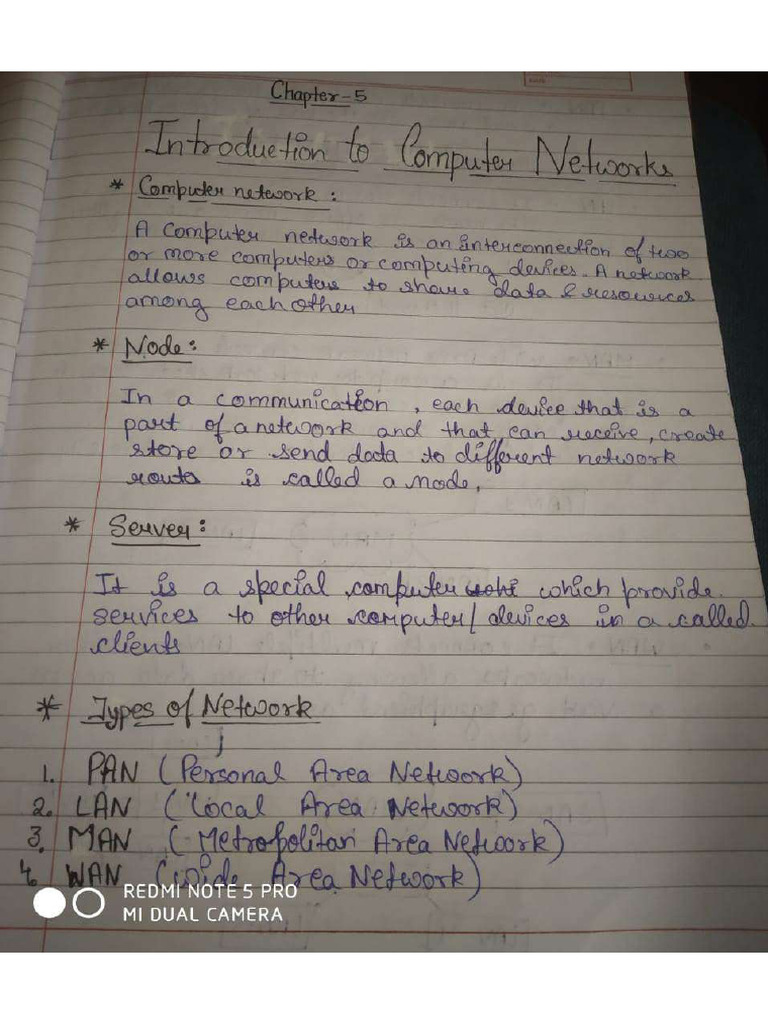 Chapter-5
Introduction to Computer Networks
* Computer network :
A Computer network is an interconnection of two
or more computers or computing devices. A network
allows computers to share data & resources
among each other
* Node :
In a communication , each device that is a
part of a network and that can receive, create
store or send data to different network
routs is called a node,
* Server :
It is a special computer which provide
services to other computer/ devices in a called
clients
* Types of Network
1. PAN (Personal Area Network)
2. LAN (Local Area Network)
3. MAN (Metropolitan Area Network)
4. WAN (wide Area Network)
REDMI NOTE 5 PRO
MI DUAL CAMERA